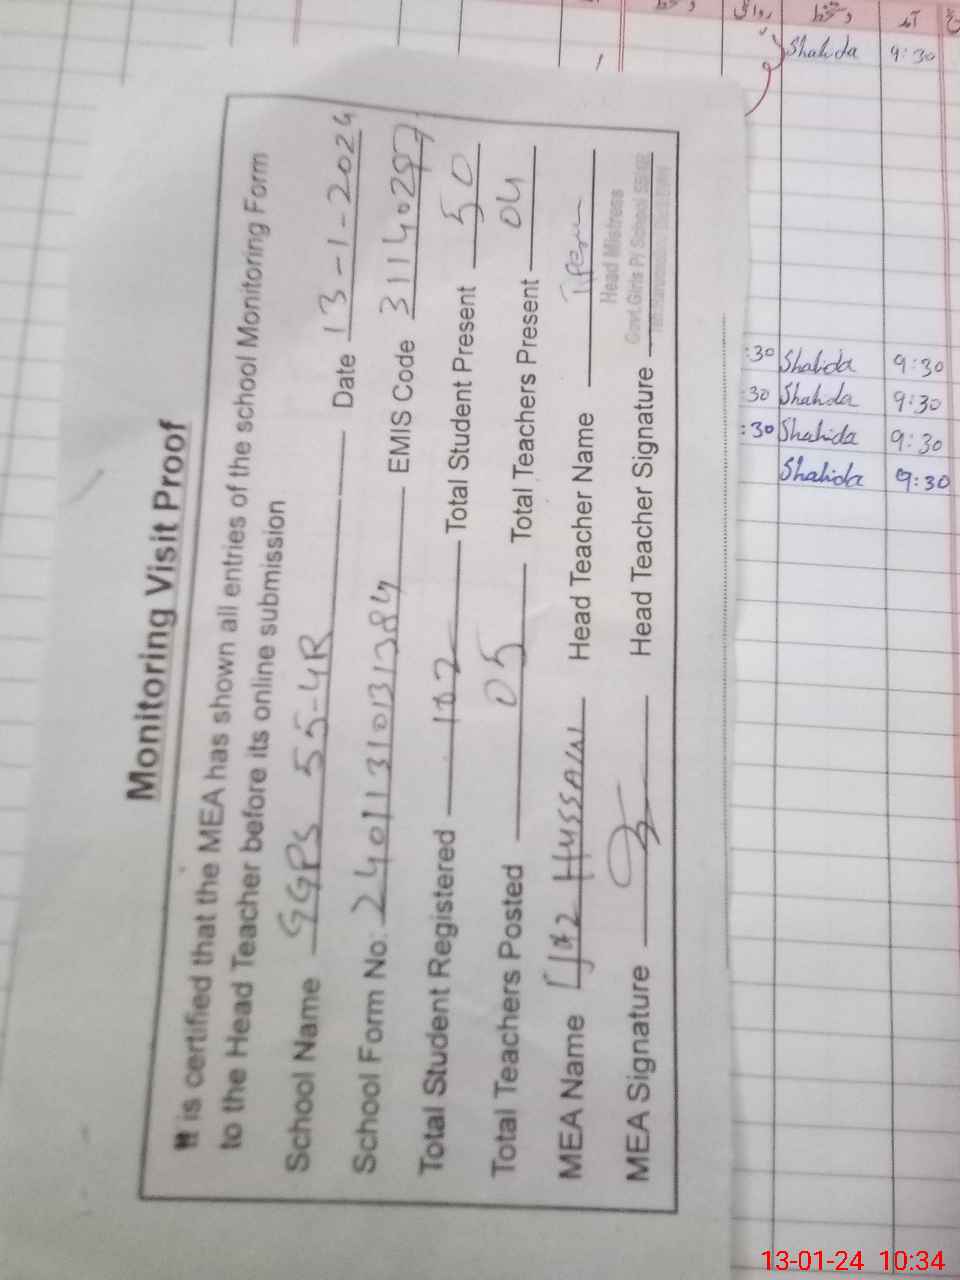 Monitoring Visit Proof
It is certified that the MEA has shown all entries of the school Monitoring Form
to the Head Teacher before its online submission
School Name GGPS 55-4R Date 13-1-2024
School Form No: 2401131013138 EMIS Code
Total Student Registered 102 Total Student Present 50
Total Teachers Posted 05 Total Teachers Present 04
MEA Name Ijaz HUSSAIN Head Teacher Name
MEA Signature Head Teacher Signature
Head Mistress
Govt.Girls P/ School
روانگی دستخط آمد
Shahida 9:30
:30 Shahida 9:30
:30 Shahida 9:30
:30 Shahida 9:30
Shahida 9:30
13-01-24 10:34